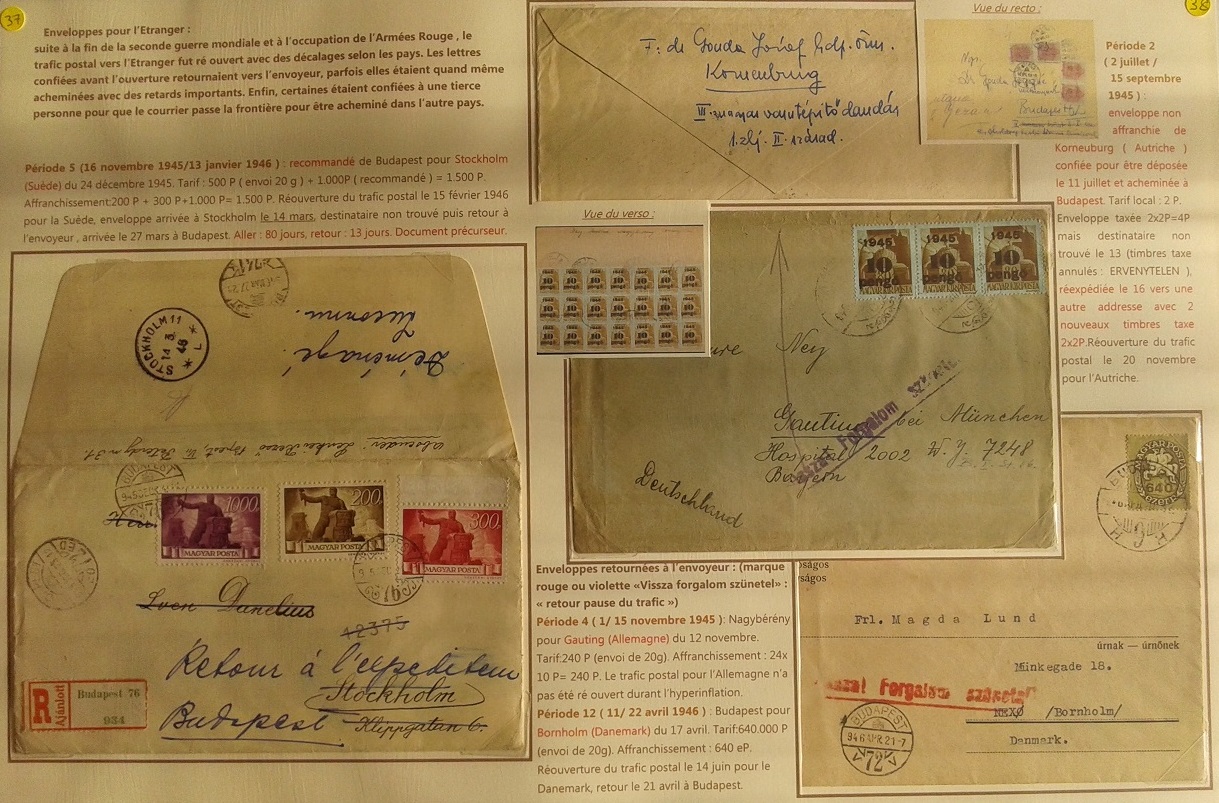 37
Enveloppes pour l'Etranger :
suite à la fin de la seconde guerre mondiale et à l'occupation de l'Armées Rouge , le
trafic postal vers l'Etranger fut ré ouvert avec des décalages selon les pays. Les lettres
confiées avant l'ouverture retournaient vers l'envoyeur, parfois elles étaient quand même
acheminées avec des retards importants. Enfin, certaines étaient confiées à une tierce
personne pour que le courrier passe la frontière pour être acheminé dans l'autre pays.
Période 5 (16 novembre 1945/13 janvier 1946 ) : recommandé de Budapest pour Stockholm
(Suéde) du 24 décembre 1945. Tarif : 500 P ( envoi 20 g ) + 1.000P ( recommandé ) = 1.500 P.
Affranchissement:200 P + 300 P+1.000 P= 1.500 P. Réouverture du trafic postal le 15 février 1946
pour la Suéde, enveloppe arrivée à Stockholm le 14 mars, destinataire non trouvé puis retour à
l'envoyeur , arrivée le 27 mars à Budapest. Aller : 80 jours, retour : 13 jours. Document précurseur.
STOCKHOLM 11
14 3
46
L
Déménagé.
Inconnu.
1000
MAGYAR POSTA
200
MAGYAR POSTA
300
MAGYAR POSTA
Sven Danelius
12375
Retour à l'expediteur
Stockholm
Budapest
Klippgatan 6.
R
Ajánlott
Budapest 76
934
F: de Gouda József
Korneuburg
Vue du recto :
Budapest
Vue du verso :
1945
10
pengő
MAGYAR KIR. POSTA
1945
10
pengő
MAGYAR KIR. POSTA
1945
10
pengő
MAGYAR KIR. POSTA
Ney
Gauting bei München
Hospital 2002 W.Y. 7248
Bayern
Deutschland
Forgalom
38
Période 2
( 2 juillet /
15 septembre
1945 ) :
enveloppe non
affranchie de
Korneuburg ( Autriche )
confiée pour être déposée
le 11 juillet et acheminée à
Budapest. Tarif local : 2 P.
Enveloppe taxée 2x2P=4P
mais destinataire non
trouvé le 13 (timbres taxe
annulés : ERVENYTELEN ),
réexpédiée le 16 vers une
autre addresse avec 2
nouveaux timbres taxe
2x2P.Réouverture du trafic
postal le 20 novembre
pour l'Autriche.
Enveloppes retournées à l'envoyeur : (marque
rouge ou violette «Vissza forgalom szünetel» :
« retour pause du trafic »)
Période 4 ( 1/ 15 novembre 1945 ): Nagybérény
pour Gauting (Allemagne) du 12 novembre.
Tarif:240 P (envoi de 20g). Affranchissement : 24x
10 P= 240 P. Le trafic postal pour l'Allemagne n'a
pas été ré ouvert durant l'hyperinflation.
Période 12 ( 11/ 22 avril 1946 ) : Budapest pour
Bornholm (Danemark) du 17 avril. Tarif:640.000 P
(envoi de 20g). Affranchissement : 640 eP.
Réouverture du trafic postal le 14 juin pour le
Danemark, retour le 21 avril à Budapest.
MAGYAR POSTA
640
Frl. Magda Lund
úrnak — úrnőnek
Minkegade 18.
Forgalom szünetel
NEXØ /Bornholm/
Danmark.
BUDAPEST
946 APR. 21-7
72